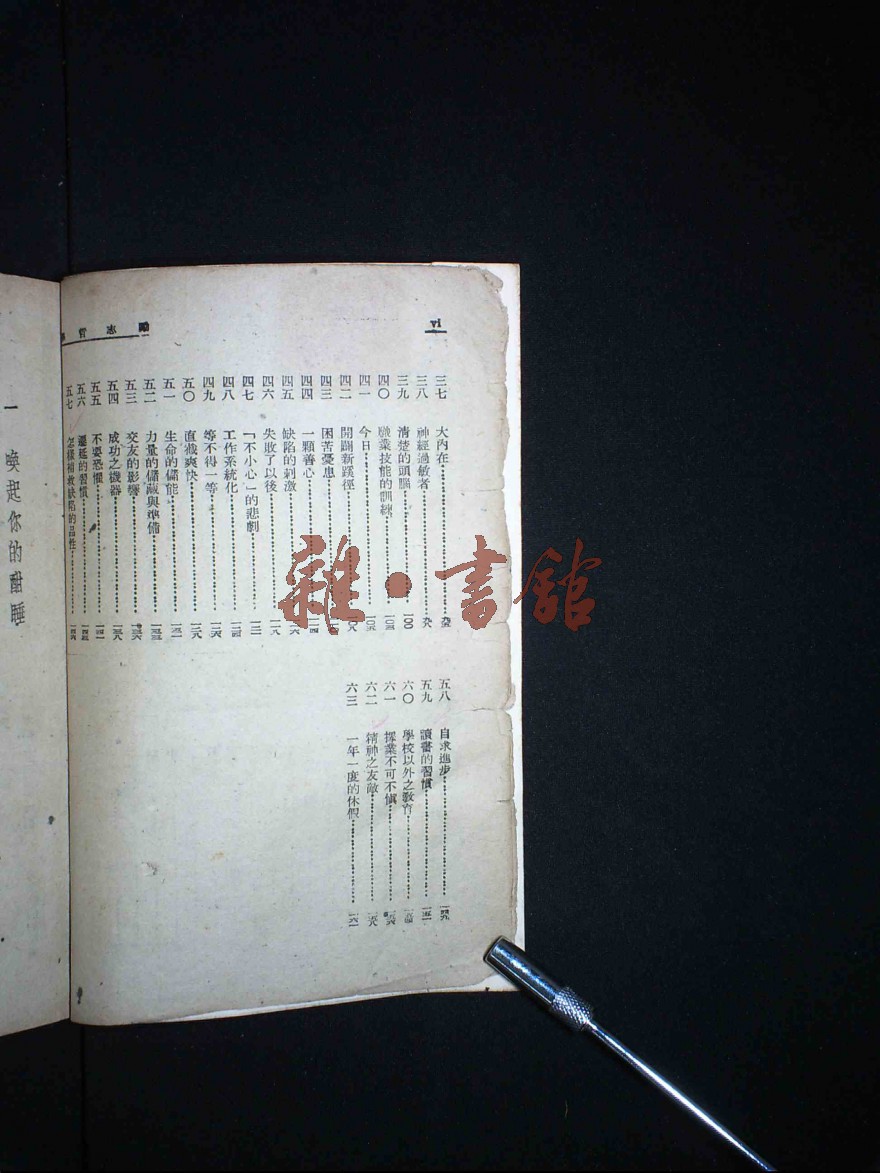 vi
勵志哲
三七 大內在 九五
三八 神經過敏者 九八
三九 清楚的頭腦 一〇〇
四〇 職業技能的訓練 一〇三
四一 今日 一〇五
四二 開闢新蹊徑 一〇八
四三 困苦憂患
四四 一顆善心
四五 缺陷的刺激
四六 失敗了以後 一一八
四七 「不小心」的悲劇 一二一
四八 工作系統化 一二四
四九 等不得一等 一二六
五〇 直截爽快 一二九
五一 生命的儲能 一三一
五二 力量的儲藏與準備 一三三
五三 交友的影響 一三六
五四 成功之機器 一三八
五五 不要恐懼 一四一
五六 遷延的習慣 一四三
五七 怎樣補救缺陷的品性 一四六
五八 自求進步 一四九
五九 讀書的習慣 一五一
六〇 學校以外之教育 一五四
六一 擇業不可不慎 一五六
六二 精神之友敵 一五八
六三 一年一度的休假 一六一
一 喚起你的酣睡
雜·書館